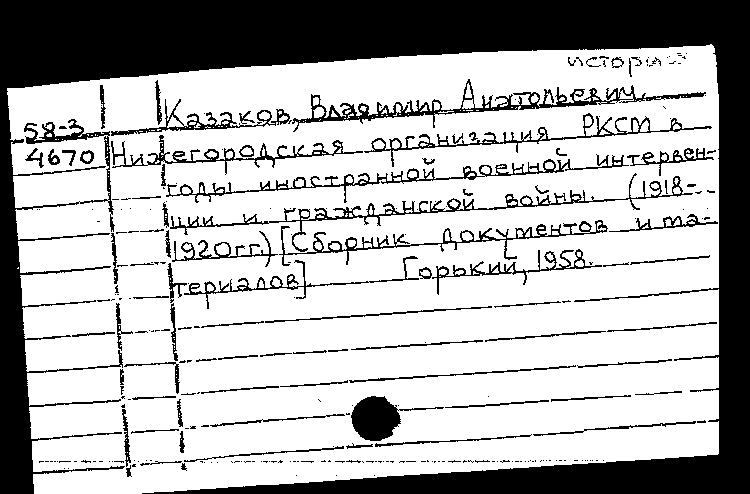 история
Казаков, Владимир Анатольевич.
58-3
4670 Нижегородская организация РКСМ в
годы иностранной военной интервен-
ции и гражданской войны. (1918-
1920гг.) [Сборник документов и ма-
териалов]. Горький, 1958.